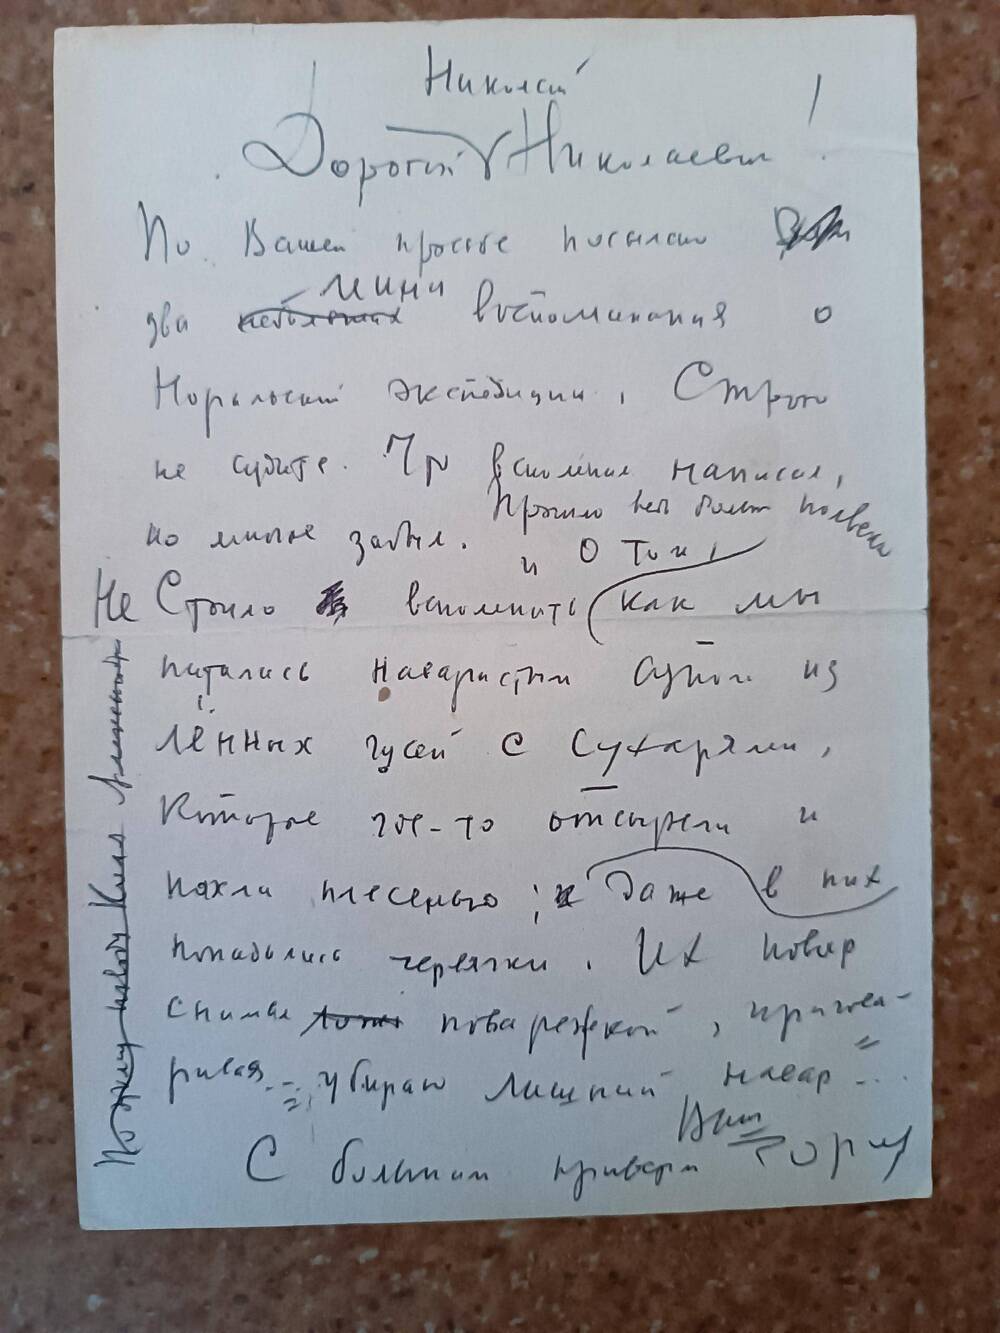 Николай
Дорогой Николаевич!
По Вашей просьбе посылаю
два мини воспоминания о
Норильской экспедиции. Строго
не судите. Что вспомнил написал,
но многое забыл. Прошло ведь более полвека
и о том,
Не Стоило вспоминать как мы
питались наваристым супом из
лённых гусей с сухарями,
которые где-то отсырели и
пахли плесенью; даже в них
попадались червячки. Их повар
снимал поварежкой, пригова-
ривая: убираю лишний навар...
С большим приветом Ваш